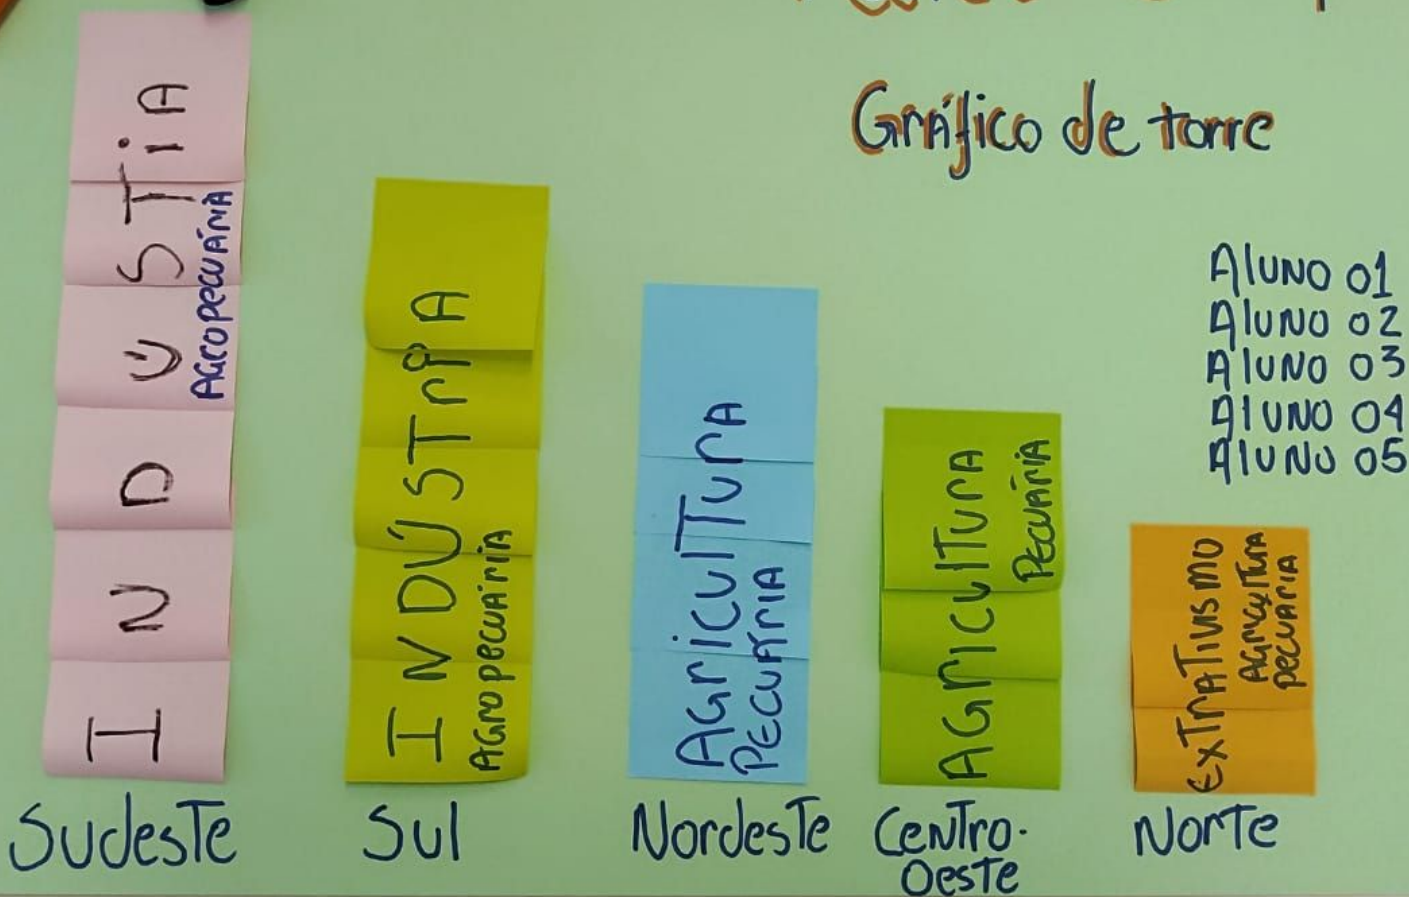 Gráfico de torre
INDÚSTiA
AGROPECUÁRIA
INDÚSTriA
AGROPECUÁRIA
AGriCUlTUrA
PECUÁRIA
AGrICUlTUrA
PECUÁRIA
EXTrATIVISMO
AGRICULTURA
PECUÁRIA
AlUNO 01
AlUNO 02
AlUNO 03
AlUNO 04
AlUNO 05
SudesTe
Sul
NordesTe
CenTro-
OesTe
NorTe